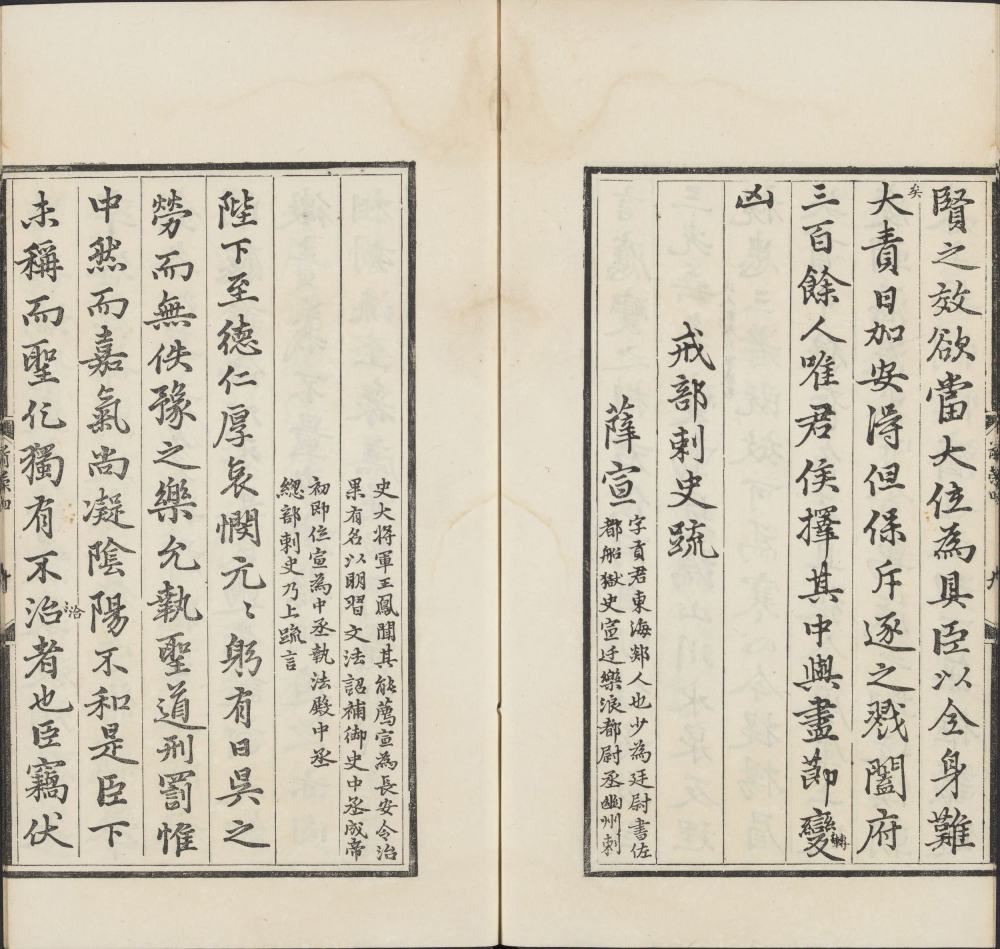 賢之效欲當大位為具臣以全身難
矣
大責日加安得但保斥逐之戮闔府
三百餘人唯君侯擇其中與盡節變
轉
凶
戒部刺史疏
薛宣
字貢君東海郯人也少為廷尉書佐
都船獄史宣迁樂浪都尉丞幽州刺
史大將軍王鳳聞其能薦宣為長安令治
果有名以明習文法詔補御史中丞成帝
初即位宣為中丞執法殿中丞
緫部刺史乃上疏言
陛下至德仁厚哀憫元〻躬有日吳之
勞而無佚豫之樂允執聖道刑罰惟
中然而嘉氣尚凝陰陽不和是臣下
未稱而聖化獨有不治者也臣竊伏
洽